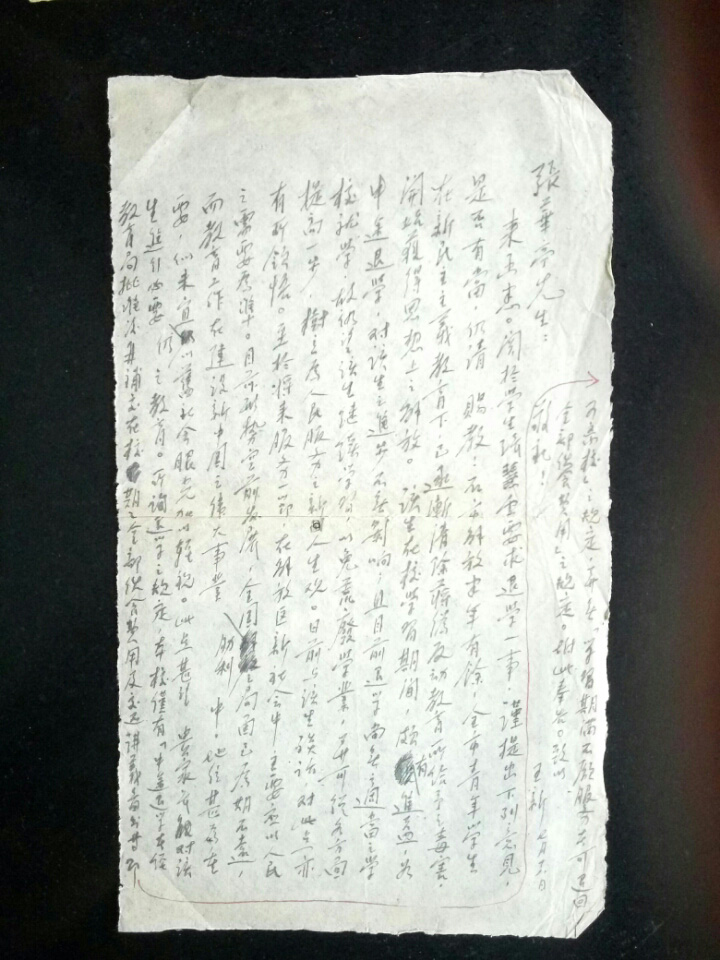 張華亭先生：
來函悉。關於學生蔣慧雲要求退學一事，謹提出下列意見，
是否有當，仍請 賜教：石市解放半年有餘，全市青年學生
在新民主主義教育下，已逐漸清除蔣偽反動教育所給予之毒害，
開始獲得思想上之解放。該生在校學習期間，頗有進益，如
中途退學，對該生之進步不無影響；且目前退學尚無適當之學
校就學，故仍望該生繼續學習，以免荒廢學業，并可從各方面
提高一步，樹立為人民服務之新人生觀。日前與該生談話，對此點亦
有所領悟。至於將來服務一節，在解放區新社會中，主要應以人民
之需要為準。目前形勢空前發展，全國勝利之局面已為期不遠，
而教育工作在建設新中國之偉大事業中，地位甚為重
要，似未宜仍以舊社會眼光加以輕視。此點甚望 貴家長能對該
生進行必要之教育。所詢退學之規定，本校僅有「中途退學在經
教育局批准後并補交在校期之全部供給費用及交還講義書籍
本校之規定，并無「學習期滿不願服務者可退回
全部供給費用」之規定。謹此奉告。致以
敬禮！
王新 七月六日